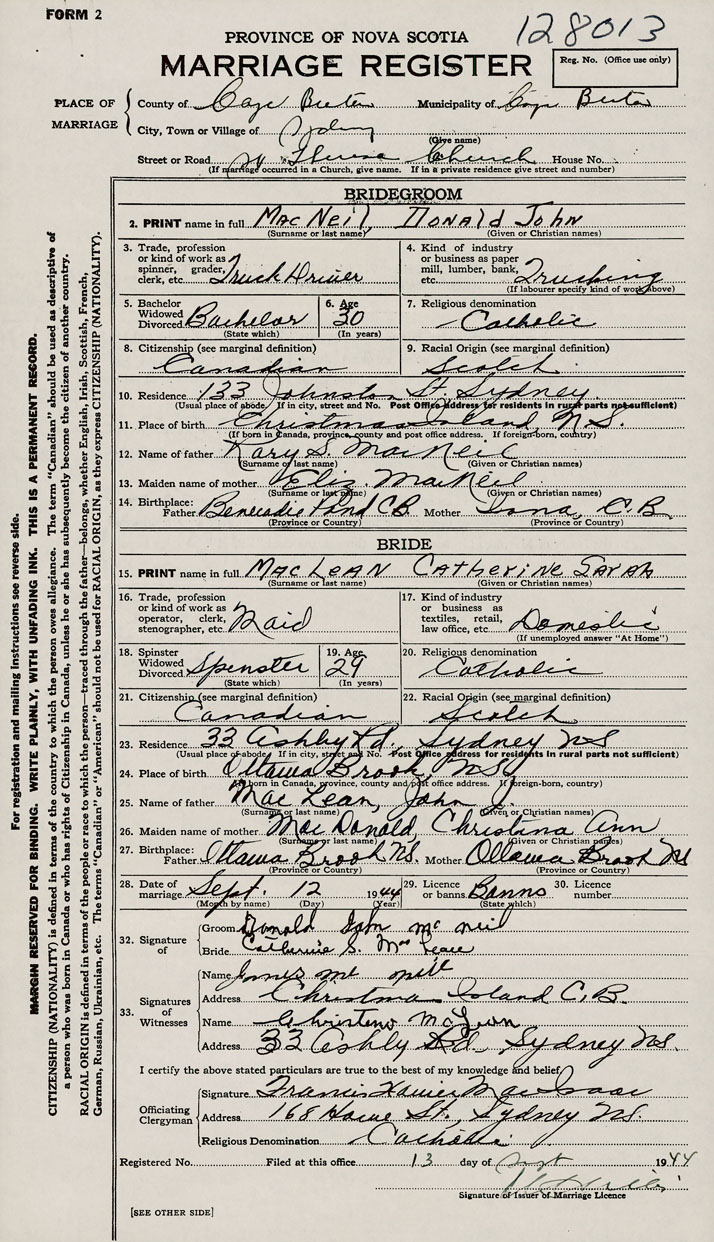 FORM 2
128013
PROVINCE OF NOVA SCOTIA
MARRIAGE REGISTER
Reg. No. (Office use only)
PLACE OF MARRIAGE
County of Cape Breton Municipality of Cape Breton
City, Town or Village of Sydney
(Give name)
Street or Road St Theresa Church House No.
(If marriage occurred in a Church, give name. If in a private residence give street and number)
BRIDEGROOM
2. PRINT name in full MacNeil, Donald John
(Surname or last name) (Given or Christian names)
3. Trade, profession or kind of work as spinner, grader, clerk, etc. Truck Driver
4. Kind of industry or business as paper mill, lumber, bank, etc. Trucking
(If labourer specify kind of work above)
5. Bachelor Widowed Divorced Bachelor
(State which)
6. Age 30
(In years)
7. Religious denomination
Catholic
8. Citizenship (see marginal definition)
Canadian
9. Racial Origin (see marginal definition)
Scotch
10. Residence 133 Johnston St Sydney
(Usual place of abode. If in city, street and No. Post Office address for residents in rural parts not sufficient)
11. Place of birth Christmas Island, N.S.
(If born in Canada, province, county and post office address. If foreign-born, country)
12. Name of father S. MacNeil
(Surname or last name) (Given or Christian names)
13. Maiden name of mother Eliz. MacNeil
(Surname or last name) (Given or Christian names)
14. Birthplace: Father Benacadie Pond CB Mother Iona, C.B.
(Province or Country) (Province or Country)
BRIDE
15. PRINT name in full MacLean Catherine Sarah
(Surname or last name) (Given or Christian names)
16. Trade, profession or kind of work as operator, clerk, stenographer, etc. Maid
17. Kind of industry or business as textiles, retail, law office, etc. Domestic
(If unemployed answer "At Home")
18. Spinster Widowed Divorced Spinster
(State which)
19. Age 29
(In years)
20. Religious denomination
Catholic
21. Citizenship (see marginal definition)
Canadian
22. Racial Origin (see marginal definition)
Scotch
23. Residence 33 Ashby Rd, Sydney NS
(Usual place of abode. If in city, street and No. Post Office address for residents in rural parts not sufficient)
24. Place of birth Ottawa Brook, NS
(If born in Canada, province, county and post office address. If foreign-born, country)
25. Name of father MacLean, John J.
(Surname or last name) (Given or Christian names)
26. Maiden name of mother MacDonald, Christina Ann
(Surname or last name) (Given or Christian names)
27. Birthplace: Father Ottawa Brook NS. Mother Ottawa Brook NS
(Province or Country) (Province or Country)
28. Date of marriage Sept. 12 1944
(Month by name) (Day) (Year)
29. Licence or banns Banns
(State which)
30. Licence number
32. Signature of
Groom Donald John Mc Neil
Bride Catherine S. MacLean
33. Signatures of Witnesses
Name James Mc Neil
Address Christmas Island C.B.
Name Christena McLean
Address 33 Ashby Rd, Sydney NS.
I certify the above stated particulars are true to the best of my knowledge and belief
Officiating Clergyman
Signature Francis Xavier MacIsaac
Address 168 Howe St., Sydney NS.
Religious Denomination Catholic
Registered No. Filed at this office 13 day of Sept 1944
Signature of Issuer of Marriage Licence
[SEE OTHER SIDE]
For registration and mailing instructions see reverse side.
MARGIN RESERVED FOR BINDING. WRITE PLAINLY, WITH UNFADING INK. THIS IS A PERMANENT RECORD.
CITIZENSHIP (NATIONALITY) is defined in terms of the country to which the person owes allegiance. The term "Canadian" should be used as descriptive of
a person who was born in Canada or who has rights of Citizenship in Canada, unless he or she has subsequently become the citizen of another country.
RACIAL ORIGIN is defined in terms of the people or race to which the person—traced through the father—belongs, whether English, Irish, Scottish, French,
German, Russian, Ukrainian, etc. The terms "Canadian" or "American" should not be used for RACIAL ORIGIN, as they express CITIZENSHIP (NATIONALITY).